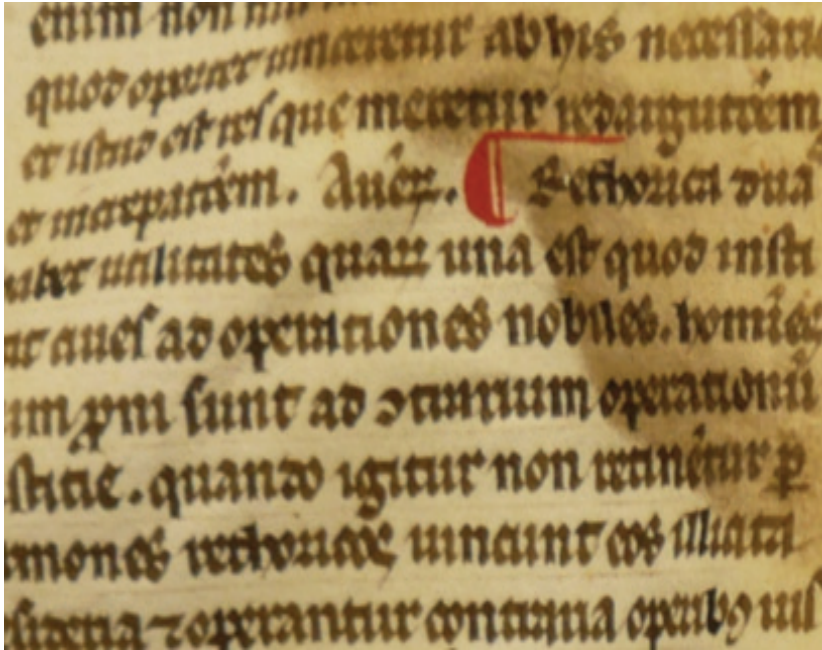 enim non
quod oportet uinceretur ab his necessari
et istud est res que meretur redargutiem
et increpatiem. Auer. Rethorica dua
utilitates quaꝝ una est quod insti
ciues ad operationes nobiles. homies
ꝓni sunt ad ↄtrarium operationū
sticie. quando igitur non retinetur ꝑ
mones rethoricos uincunt eos illicita
⁊ operantur contraria operibꝫ uis